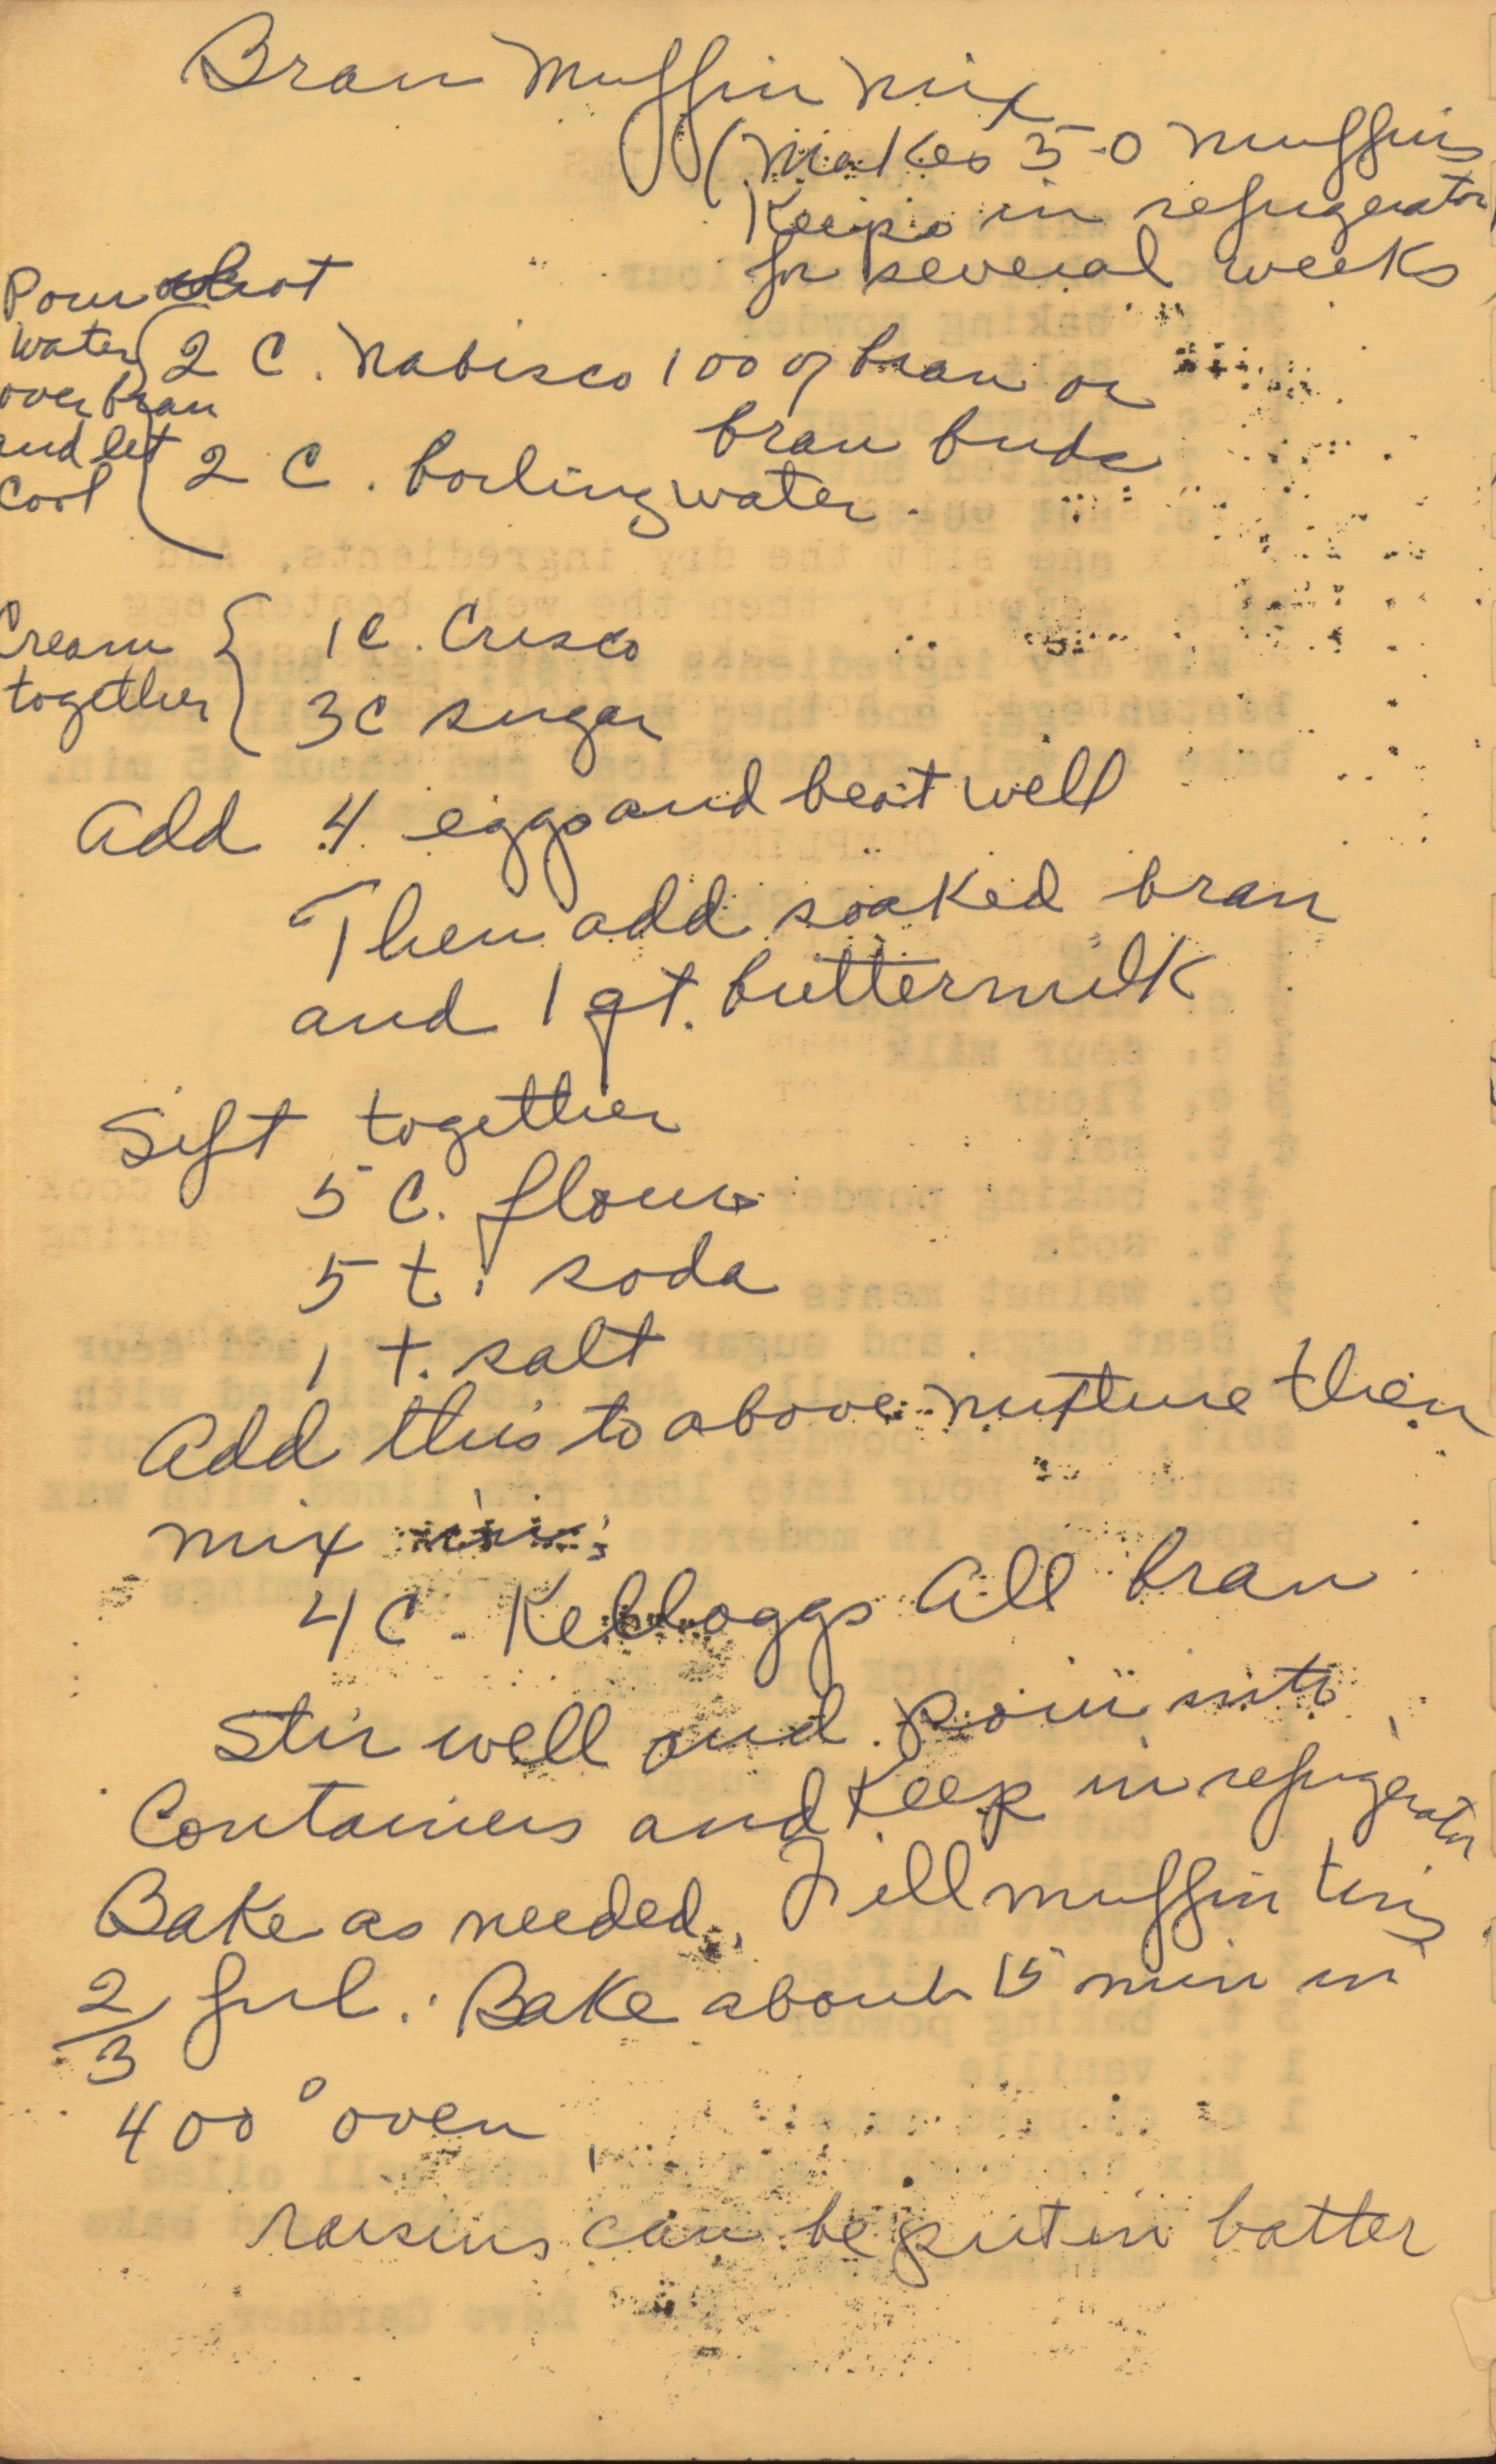 Bran Muffin Mix
(Makes 50 muffins
Keeps in refrigerator
for several weeks)
Pour hot
water
over bran
and let
cool
2 C. Nabisco 100% bran or
bran buds
2 C. boiling water.
Cream
together
1 C. Crisco
3 C sugar
Add 4 eggs and beat well
Then add soaked bran
and 1 qt. buttermilk
Sift together
5 C. flour
5 t. soda
1 t. salt
Add this to above mixture then
mix in
4 C. Kelloggs All bran
Stir well and pour into
Containers and Keep in refrigerator
Bake as needed. Fill muffin tins
2/3 ful. Bake about 15 min in
400° oven
raisins can be put in batter